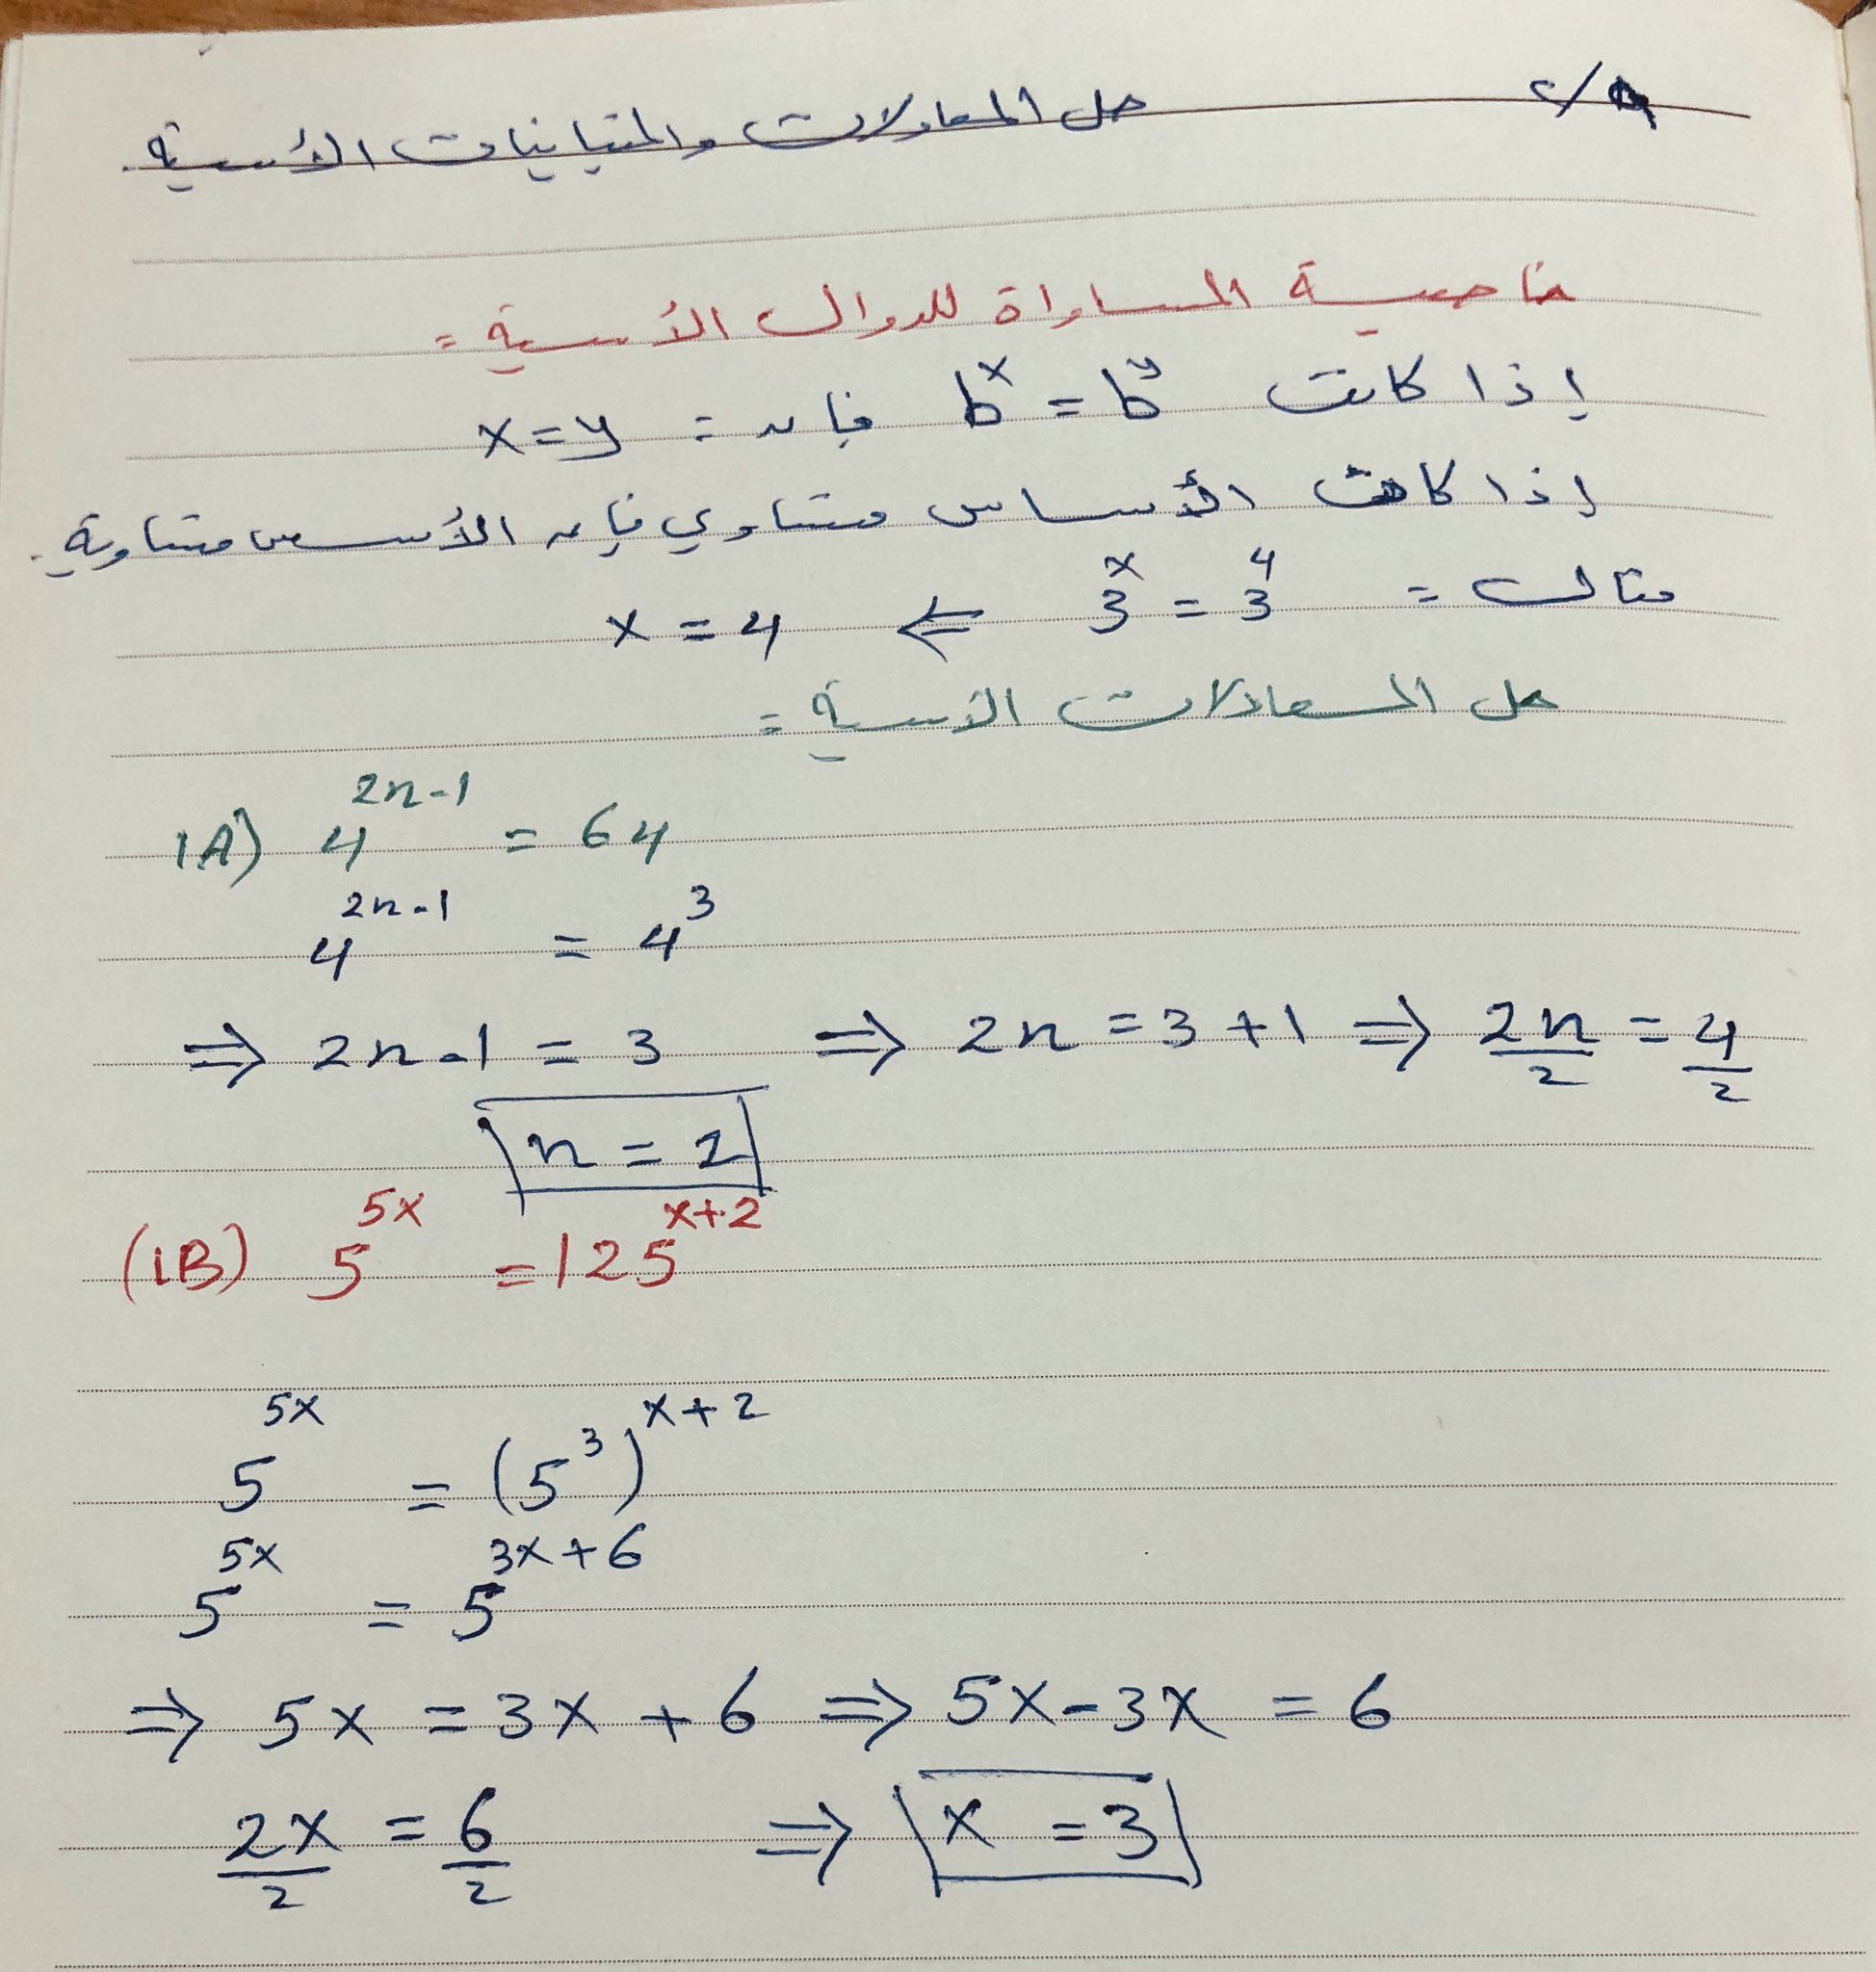 حل المعادلات والمتباينات الأسية
خاصية المساواة للدوال الأسية :
إذا كانت b^x = b^y فإن : x = y
إذا كانت الأساس متساوي فإن الأسس متساوية .
مثال : 3^x = 3^4 ⇐ x = 4
حل المعادلات الأسية :
1A) 4^{2n-1} = 64
4^{2n-1} = 4^3
⇒ 2n-1 = 3 ⇒ 2n = 3+1 ⇒ 2n/2 = 4/2
n = 2
(1B) 5^{5x} = 125^{x+2}
5^{5x} = (5^3)^{x+2}
5^{5x} = 5^{3x+6}
⇒ 5x = 3x + 6 ⇒ 5x - 3x = 6
2x/2 = 6/2 ⇒ x = 3